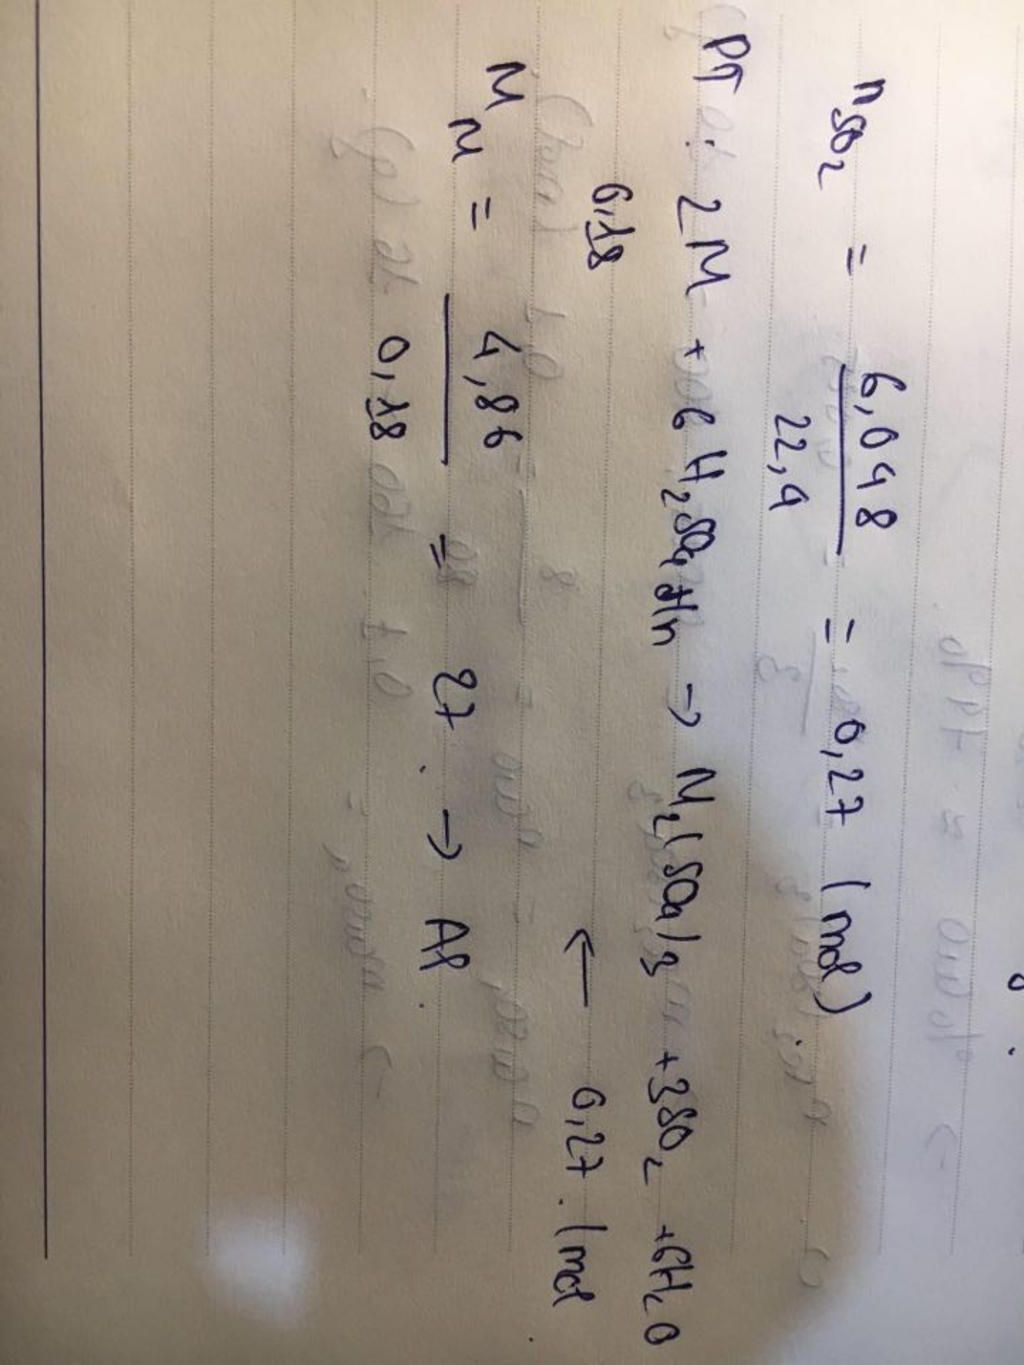 n SO₂ = 6,048 / 22,4 = 0,27 (mol)
PT : 2M + 6H₂SO₄ đ/n → M₂(SO₄)₃ + 3SO₂ + 6H₂O
0,18 ← 0,27 (mol
M M = 4,86 / 0,18 = 27 . → Al .